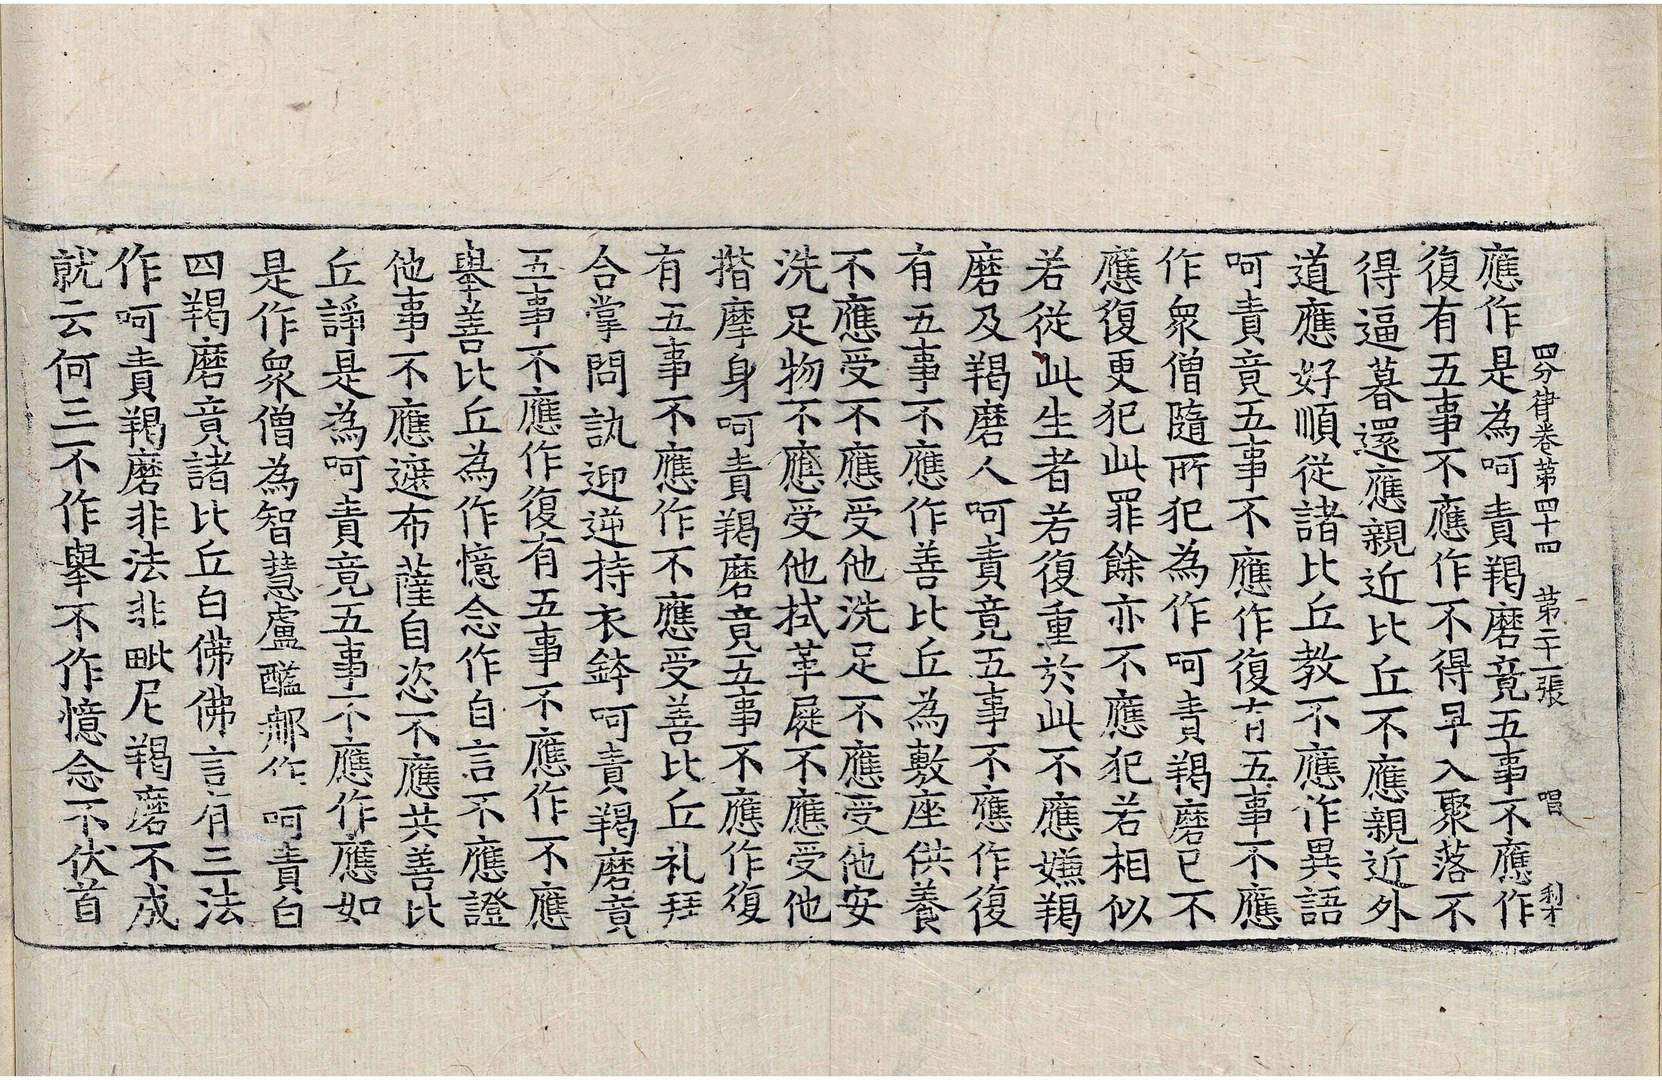 四分律卷第四十四 第二十一張 唱 利才
應作是為呵責羯磨竟五事不應作
復有五事不應作不得早入聚落不
得逼暮還應親近比丘不應親近外
道應好順從諸比丘教不應作異語
呵責竟五事不應作復有五事不應
作衆僧隨所犯為作呵責羯磨已不
應復更犯此罪餘亦不應犯若相似
若從此生者若復重於此不應嫌羯
磨及羯磨人呵責竟五事不應作復
有五事不應作善比丘為敷座供養
不應受不應受他洗足不應受他安
洗足物不應受他拭革屣不應受他
揩摩身呵責羯磨竟五事不應作復
有五事不應作不應受善比丘礼拜
合掌問訊迎逆持衣鉢呵責羯磨竟
五事不應作復有五事不應作不應
舉善比丘為作憶念作自言不應證
他事不應遮布薩自恣不應共善比
丘諍是為呵責竟五事不應作應如
是作衆僧為智慧盧醯那作呵責白
四羯磨竟諸比丘白佛佛言有三法
作呵責羯磨非法非毗尼羯磨不成
就云何三不作舉不作憶念不伏首